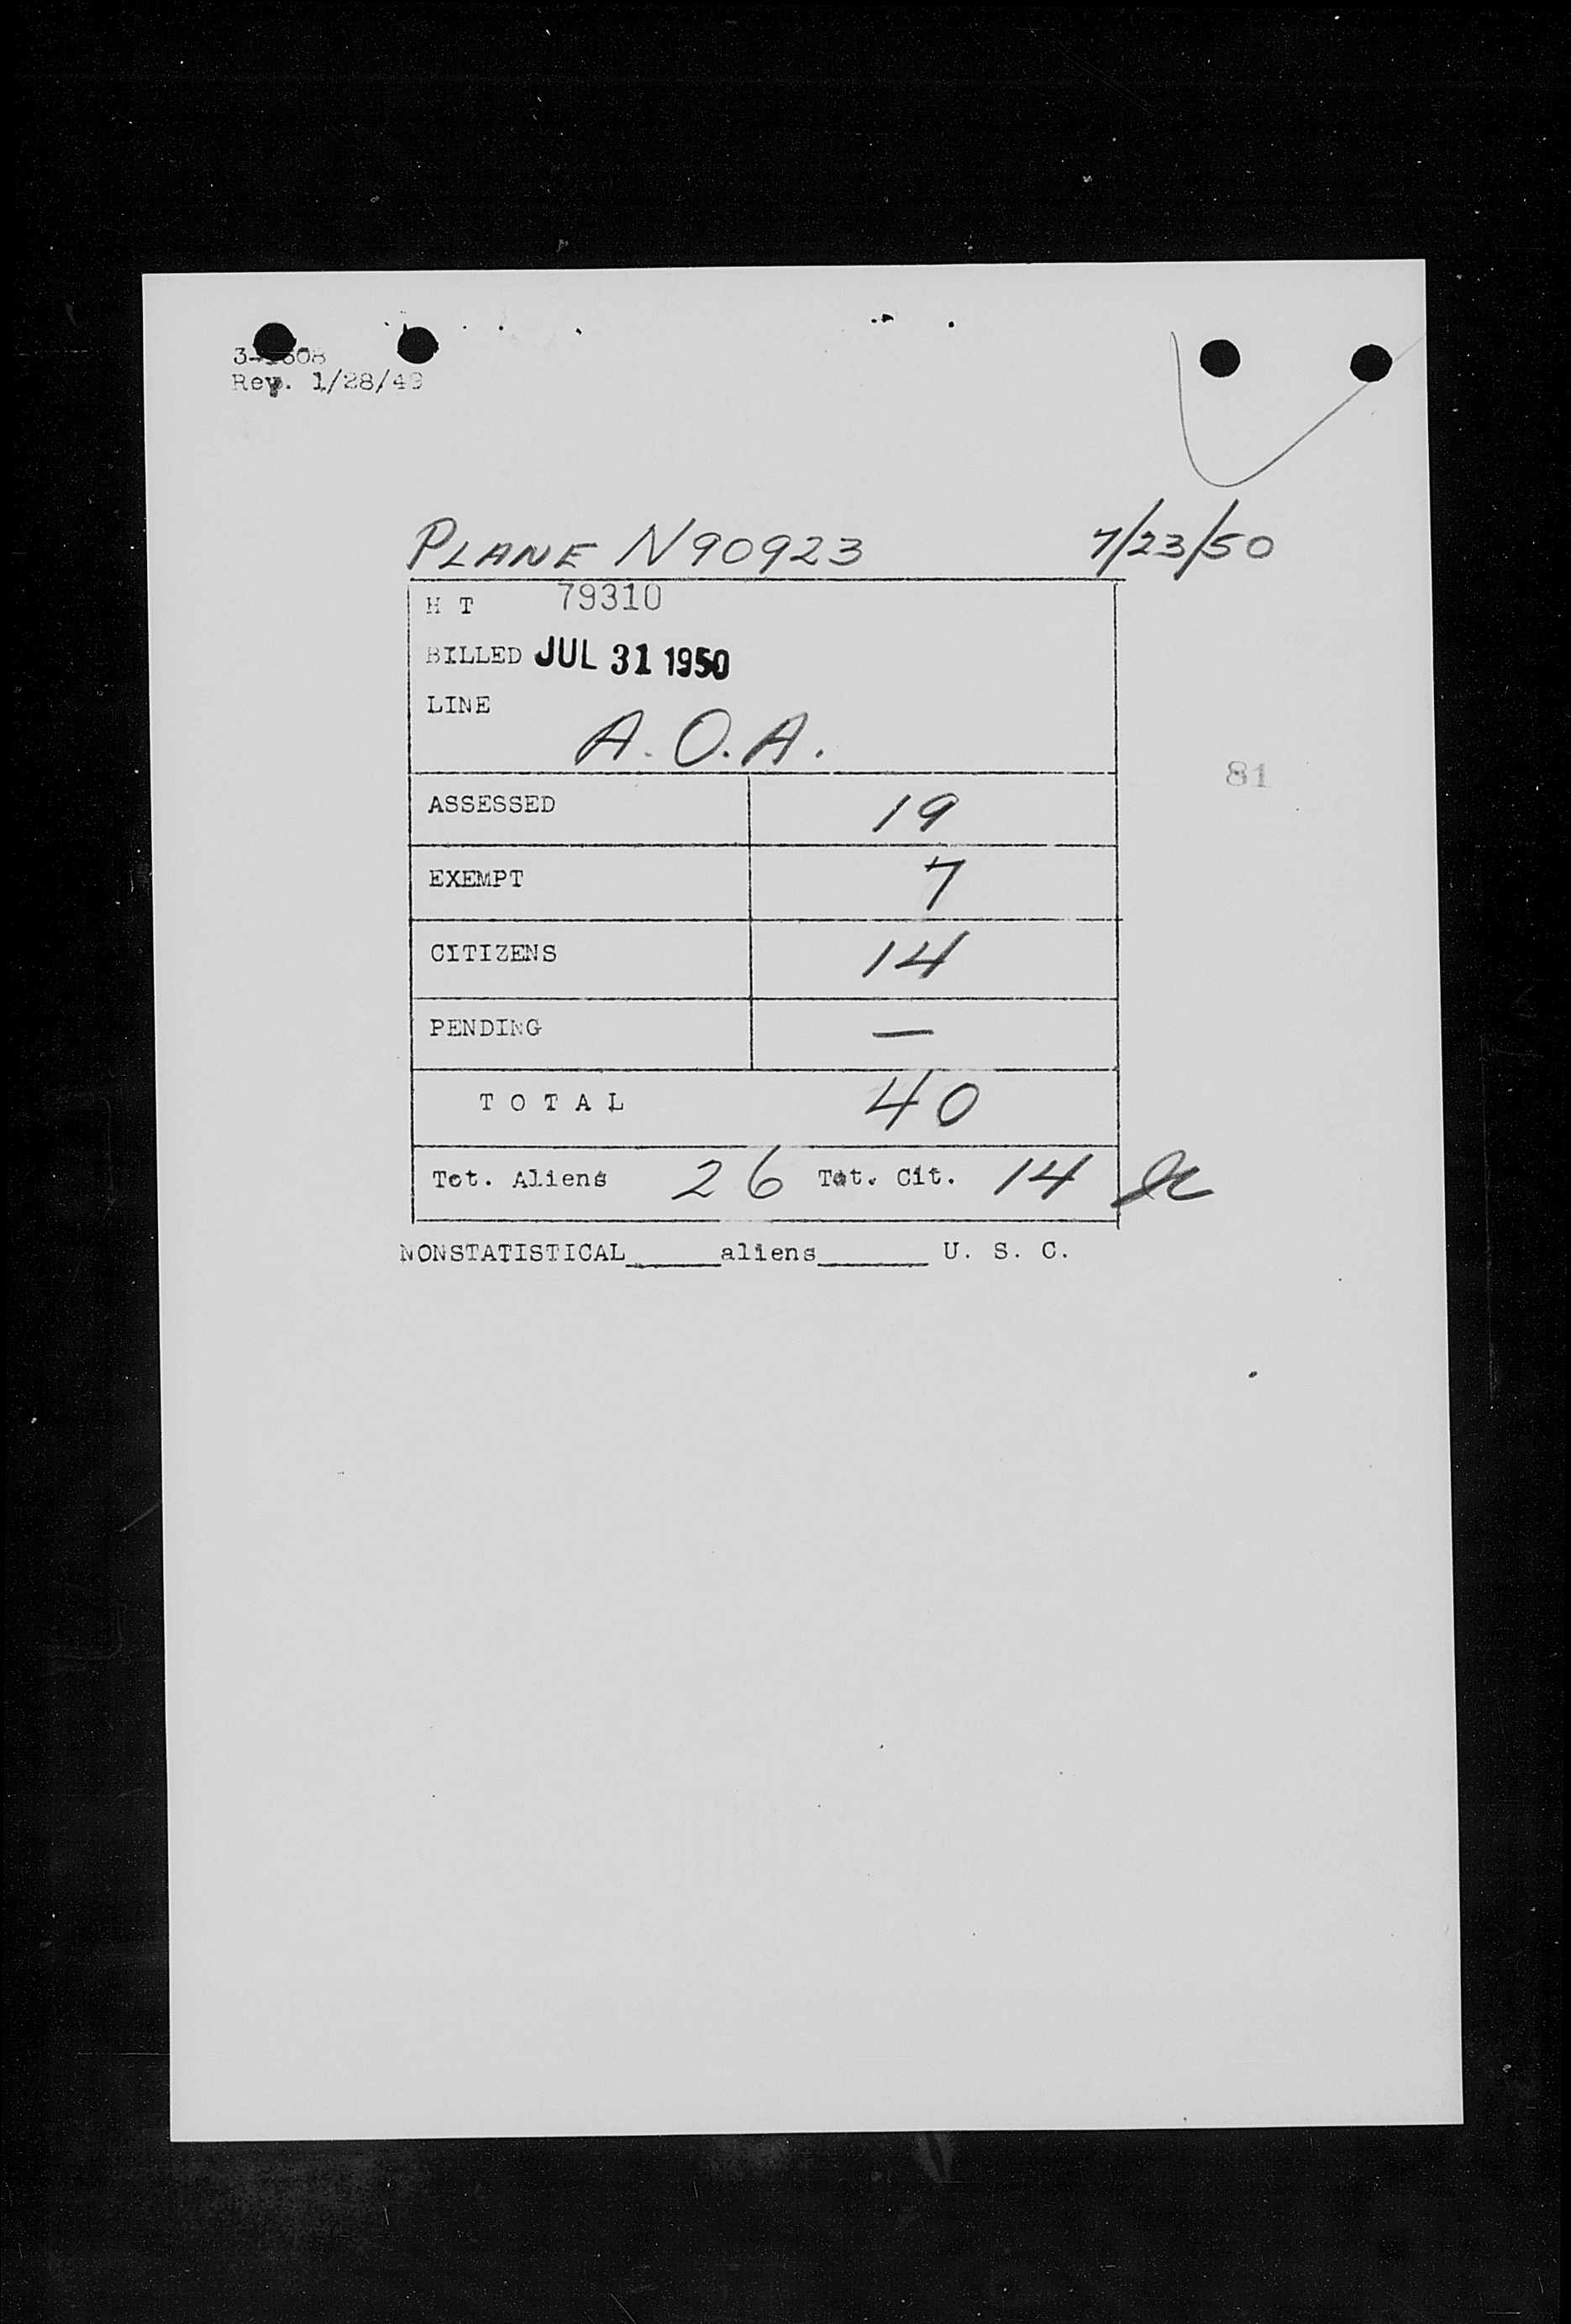 Rev. 1/28/49
PLANE N90923 7/23/50
H T 79310
BILLED JUL 31 1950
LINE
A.O.A.
81
ASSESSED 19
EXEMPT 7
CITIZENS 14
PENDING —
TOTAL 40
Tot. Aliens 26 Tot. Cit. 14
NONSTATISTICAL_____aliens______ U. S. C.